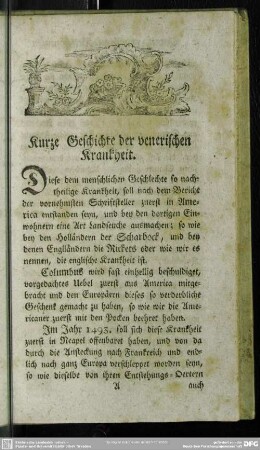 Kurze Geschichte der venerischen
Krankheit.
Diese dem menschlichen Geschlechte so nach-
theilige Krankheit, soll nach dem Bericht
der vornehmsten Schriftsteller zuerst in Ame-
rica entstanden seyn, und bey den dortigen Ein-
wohnern eine Art Landseuche ausmachen; so wie
bey den Holländern der Scharbock, und bey
denen Engländern die Rickets oder wie wir es
nennen, die englische Krankheit ist.
Columbus wird fast einhellig beschuldiget,
vorgedachtes Uebel zuerst aus America mitge-
bracht und den Europäern dieses so verderbliche
Geschenk gemacht zu haben, so wie wir die Ame-
ricaner zuerst mit den Pocken beehret haben.
Im Jahr 1493. soll sich diese Krankheit
zuerst in Neapel offenbaret haben, und von da
durch die Ansteckung nach Frankreich und end-
lich nach ganz Europa verschleppet worden seyn,
so wie dieselbe von ihren Entstehungs-Oertern
A auch